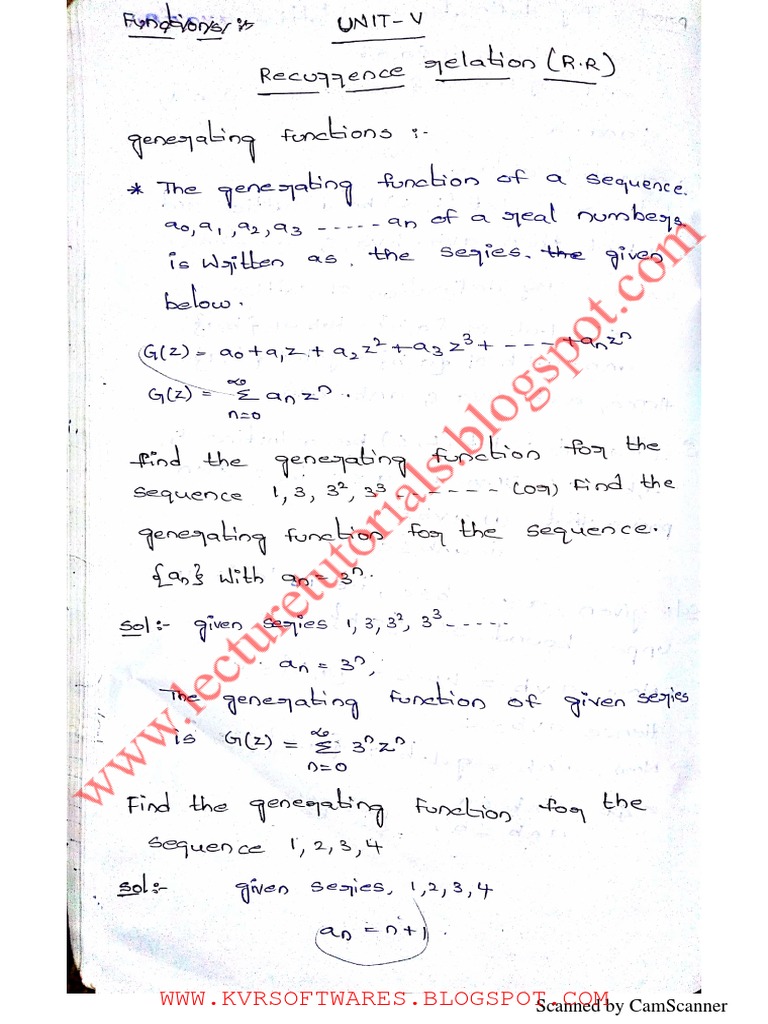 Functions :-
UNIT-V
Recurrence relation (R.R)
generating functions :-
* The generating function of a sequence.
a0, a1, a2, a3 ----- an of a real numbers
is written as. the series. the given
below.
G(z) = a0 + a1z + a2z² + a3z³ + --- + anzⁿ
G(z) = ∞ Σ n=0 anzⁿ.
find the generating function for the
sequence 1, 3, 3², 3³ ------ (or) Find the
generating function for the sequence.
{an} with an = 3ⁿ.
Sol:- given series 1, 3, 3², 3³ -----
an = 3ⁿ,
The generating function of given series
is G(z) = ∞ Σ n=0 3ⁿzⁿ.
Find the generating function for the
sequence 1, 2, 3, 4
Sol:- given series, 1, 2, 3, 4
an = n+1.
www.lecturetutorials.blogspot.com
WWW.KVRSOFTWARES.BLOGSPOT.COM
Scanned by CamScanner